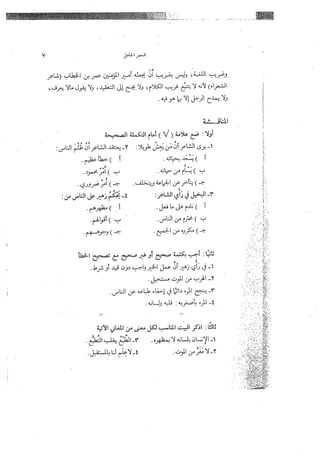 العصر الجاهلي ٧
وغريب اللغة، وليس بغريب أن يجعله أمير المؤمنين عمر بن الخطاب (شاعر
الشعراء) لأنه لا يتتبع غريب الكلام، ولا يجنح إلى التعقيد، ولا يقول مالا يعرف،
ولا يمدح الرجل إلا بما هو فيه.
المناقشة
أولا: ضع علامة (√) أمام التكملة الصحيحة
١- يرى الشاعر أن من يعش طويلا: ٢- يعتقد الشاعر أن ظلم الناس:
أ ) يسعد بحياته. أ ) خطأ عظيم.
ب ) يسأم من حياته. ب ) أمر محمود.
جـ ) يتأخر عن الجماعة ويتخلف. جـ ) أمر ضروري.
٣- البخيل في رأي الشاعر: ٤- يحكم زهير على الناس من:
أ ) نادم على ما فعل. أ ) مظهرهم.
ب ) محترم من الناس. ب ) أقوالهم.
جـ ) مكروه من الجميع. جـ ) وجوههم.
ثانيًا: أجب بكلمة صحيح أو غير صحيح مع تصحيح الخطأ
١- في رأي زهير أن عمل الخير واجب دون قيد أو شرط.
٢- الهرب من الموت مستحيل.
٣- ينجح المرء دائمًا في إخفاء طباعه عن الناس.
٤- المرء بأصغريه: قلبه ولسانه.
ثالثًا: اذكر البيت المناسب لكل معنى من المعاني الآتية
١- الإنسان بلسانه لا بمظهره. ٣- الطبع يغلب التطبع.
٢- لا مفر من الموت. ٤- لا علم لنا بالمستقبل.